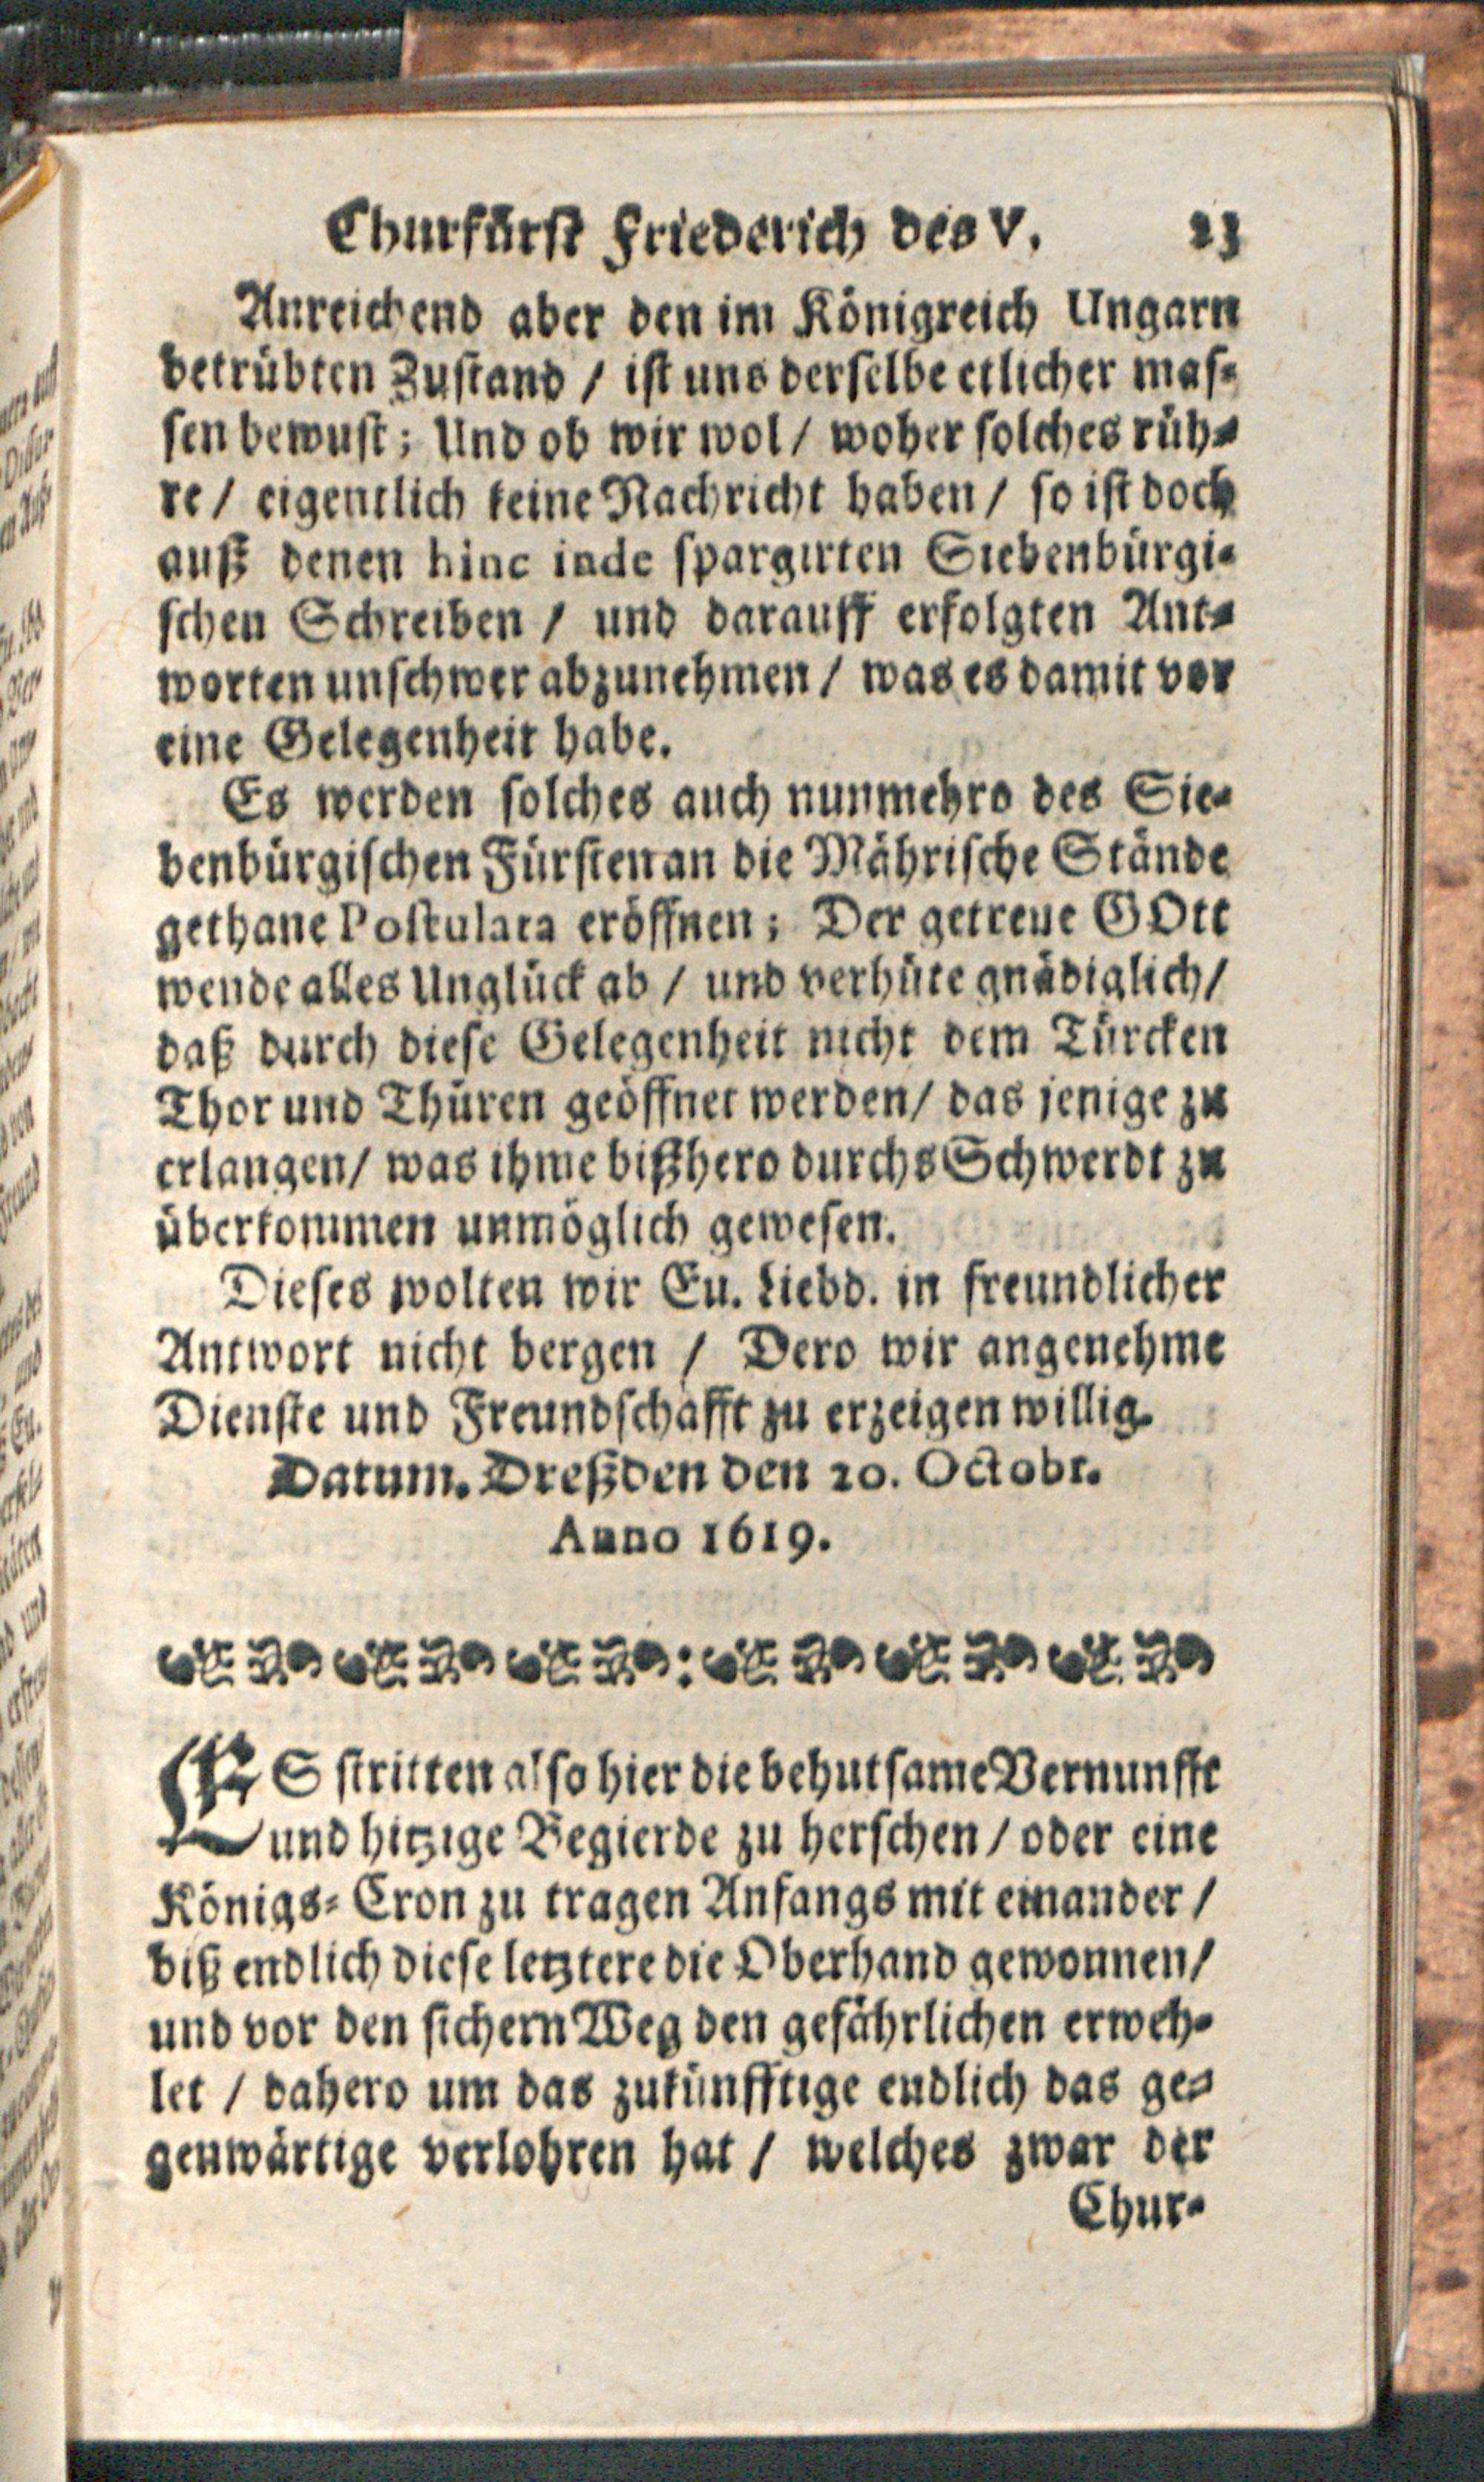 Churfürst Friederich des V. 23
Anreichend aber den im Königreich Ungarn
betrübten Zustand / ist uns derselbe etlicher mas-
sen bewust; Und ob wir wol / woher solches rüh-
re / eigentlich keine Nachricht haben / so ist doch
auß denen hinc inde spargirten Siebenbürgi-
schen Schreiben / und darauff erfolgten Ant-
worten unschwer abzunehmen / was es damit vor
eine Gelegenheit habe.
Es werden solches auch nunmehro des Sie-
benbürgischen Fürsten an die Mährische Stände
gethane Postulata eröffnen; Der getreue GOtt
wende alles Unglück ab / und verhüte gnädiglich /
daß durch diese Gelegenheit nicht dem Türcken
Thor und Thüren geöffnet werden / das jenige zu
erlangen / was ihme bißhero durchs Schwerdt zu
überkommen unmöglich gewesen.
Dieses wolten wir Eu. Liebd. in freundlicher
Antwort nicht bergen / Dero wir angenehme
Dienste und Freundschafft zu erzeigen willig.
Datum. Dreßden den 20. Octobr.
Anno 1619.
ES stritten also hier die behutsame Vernunfft
und hitzige Begierde zu herschen / oder eine
Königs-Cron zu tragen Anfangs mit einander /
biß endlich diese letztere die Oberhand gewonnen /
und vor den sichern Weg den gefährlichen erweh-
let / dahero um das zukünfftige endlich das ge-
genwärtige verlohren hat / welches zwar der
Chur-